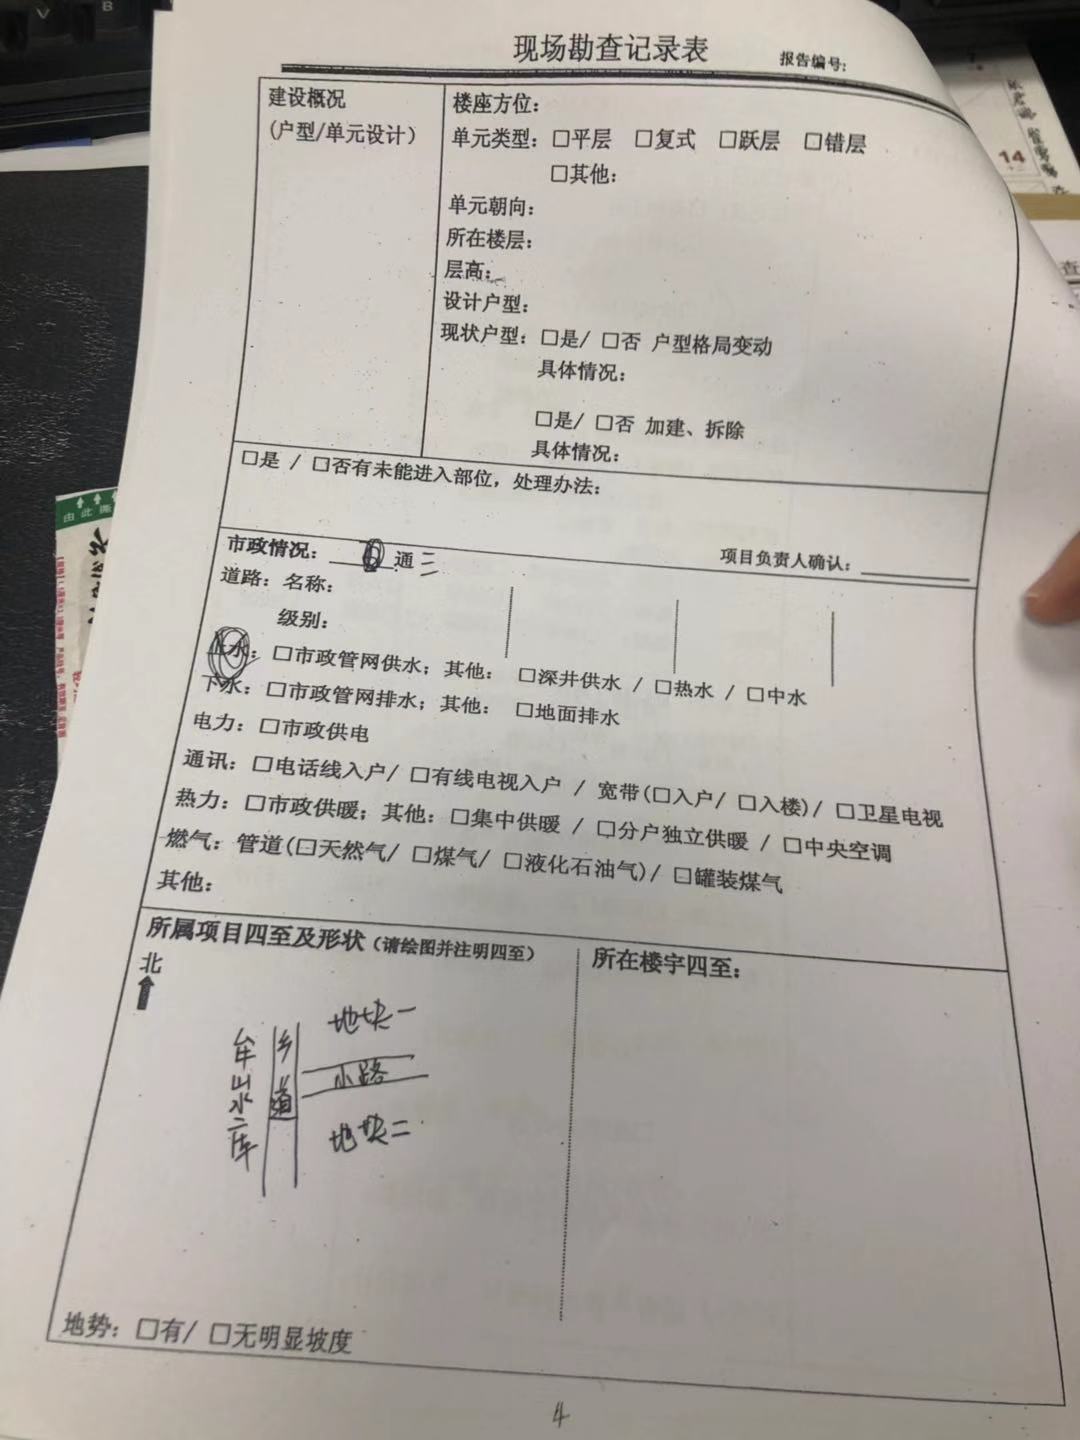 现场勘查记录表
报告编号:
建设概况
(户型/单元设计)
楼座方位:
单元类型: □平层 □复式 □跃层 □错层
□其他:
单元朝向:
所在楼层:
层高:
设计户型:
现状户型: □是/ □否 户型格局变动
具体情况:
□是/ □否 加建、拆除
具体情况:
□是 / □否有未能进入部位, 处理办法:
市政情况: 通 三
项目负责人确认:
道路: 名称:
级别:
上水: □市政管网供水; 其他: □深井供水 / □热水 / □中水
下水: □市政管网排水; 其他: □地面排水
电力: □市政供电
通讯: □电话线入户/ □有线电视入户 / 宽带(□入户/ □入楼)/ □卫星电视
热力: □市政供暖; 其他: □集中供暖 / □分户独立供暖 / □中央空调
燃气: 管道(□天然气/ □煤气/ □液化石油气)/ □罐装煤气
其他:
所属项目四至及形状(请绘图并注明四至)
所在楼宇四至:
北
牟山水库
乡道
地块一
小路
地块二
地势: □有/ □无明显坡度
4
14
由此撕
查